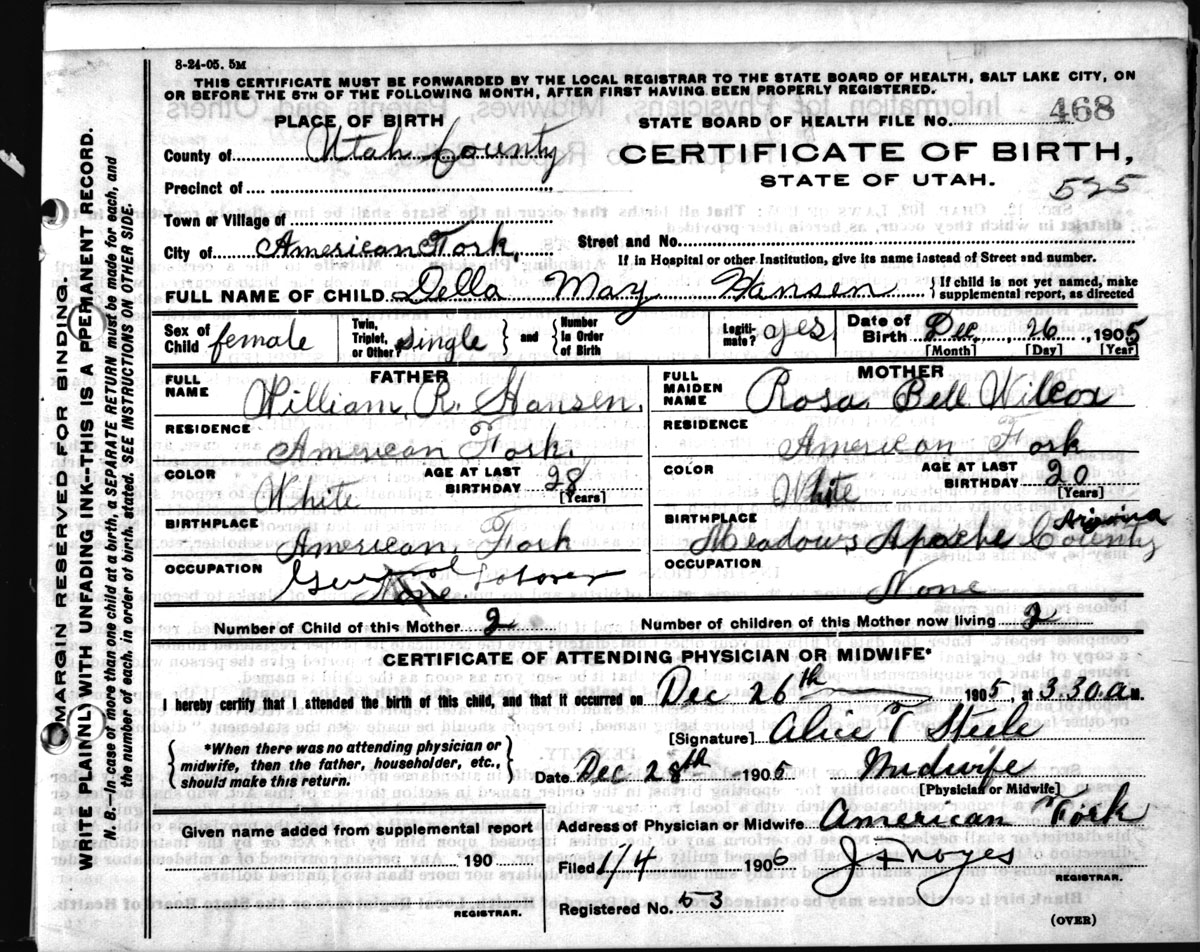 8-24-05. 5M
THIS CERTIFICATE MUST BE FORWARDED BY THE LOCAL REGISTRAR TO THE STATE BOARD OF HEALTH, SALT LAKE CITY, ON
OR BEFORE THE 5TH OF THE FOLLOWING MONTH, AFTER FIRST HAVING BEEN PROPERLY REGISTERED.
PLACE OF BIRTH
STATE BOARD OF HEALTH FILE No. 468
County of Utah County
CERTIFICATE OF BIRTH,
STATE OF UTAH.
525
Precinct of
Town or Village of
City of American Fork,
Street and No.
If in Hospital or other Institution, give its name instead of Street and number.
FULL NAME OF CHILD Della May Hansen
{ If child is not yet named, make
supplemental report, as directed
Sex of Child female
Twin, Triplet, or Other? single } and { Number in Order of Birth
Legiti-mate? yes
Date of Birth Dec. 26, 1905
[Month] [Day] [Year]
FATHER
FULL NAME William R. Hansen.
RESIDENCE
American Fork.
COLOR White
AGE AT LAST BIRTHDAY 28
[Years]
BIRTHPLACE
American Fork
OCCUPATION
General Laborer
None
MOTHER
FULL MAIDEN NAME Rosa Bell Wilcox
RESIDENCE
American Fork
COLOR White
AGE AT LAST BIRTHDAY 20
[Years]
BIRTHPLACE Arizona
Meadows Apache County
OCCUPATION
None
Number of Child of this Mother 2
Number of children of this Mother now living 2
CERTIFICATE OF ATTENDING PHYSICIAN OR MIDWIFE*
I hereby certify that I attended the birth of this child, and that it occurred on Dec 26th 1905 at 3.30 a M.
[Signature] Alice T Steele
{ *When there was no attending physician or
midwife, then the father, householder, etc.,
should make this return. }
Date Dec 28th 1905
Midwife
[Physician or Midwife]
Given name added from supplemental report
190
REGISTRAR.
Address of Physician or Midwife American Fork
Filed 1/4 1906
J F Noyes
REGISTRAR.
Registered No. 53
(OVER)
MARGIN RESERVED FOR BINDING.
WRITE PLAINLY WITH UNFADING INK--THIS IS A PERMANENT RECORD.
N. B.—In case of more than one child at a birth, a SEPARATE RETURN must be made for each, and
the number of each, in order of birth, stated. SEE INSTRUCTIONS ON OTHER SIDE.